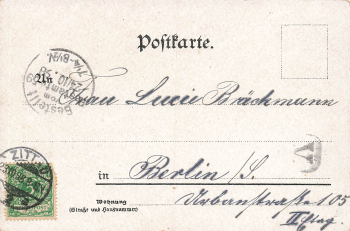 Postkarte.
An Frau Lucie Bräckmann
in Berlin/S.
Wohnung
(Straße und Hausnummer)
Urbanstrasse 105
II Etag.
Bestellt
vom
Postamte
ZITT